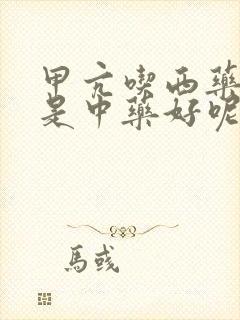 甲亢喫西藥
是中藥好呢
馬彧